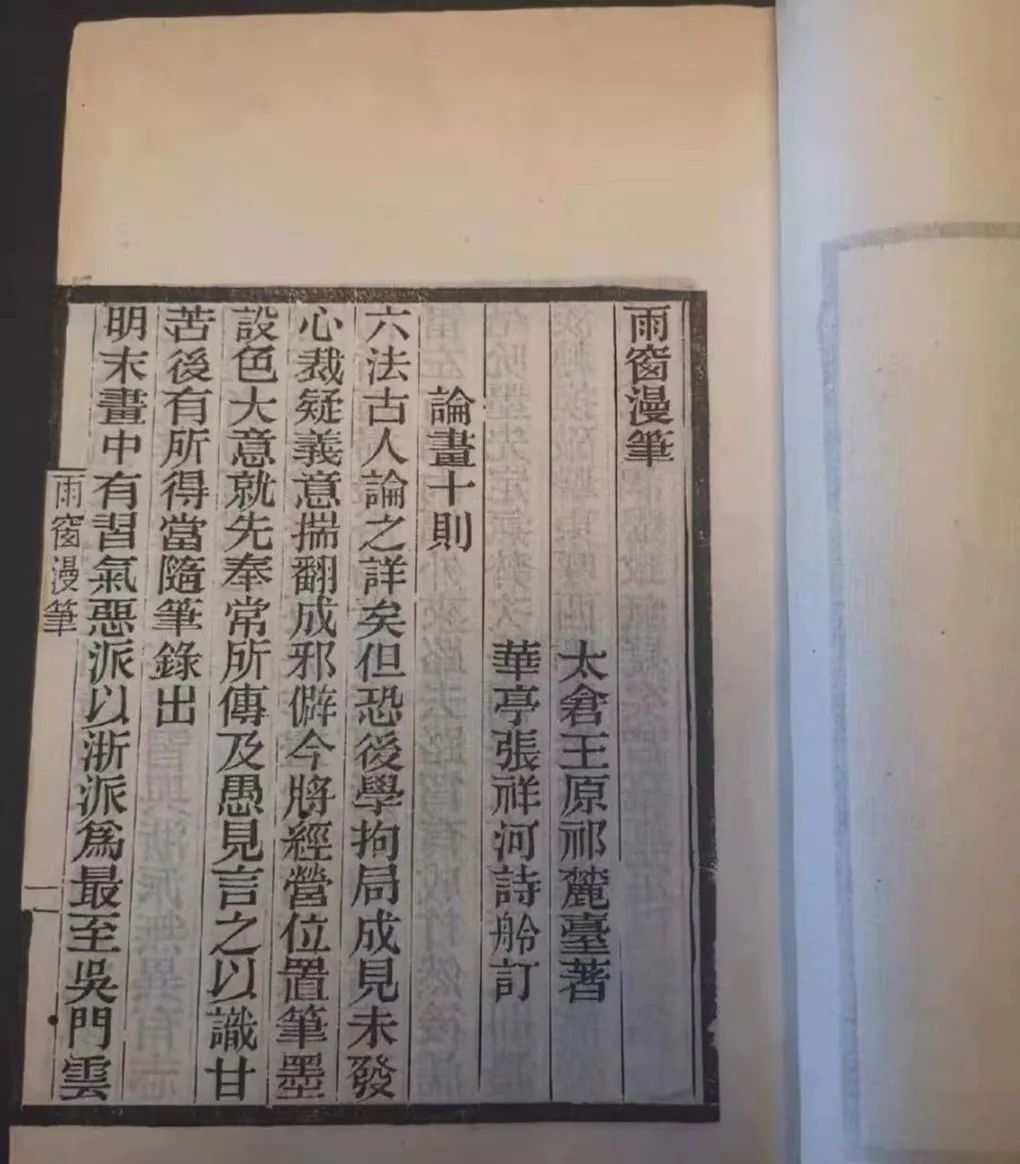 雨窗漫筆
太倉王原祁麓臺著
華亭張祥河詩舲訂
論畫十則
六法古人論之詳矣但恐後學拘局成見未發
心裁疑義意揣翻成邪僻今將經營位置筆墨
設色大意就先奉常所傳及愚見言之以識甘
苦後有所得當隨筆錄出
明末畫中有習氣惡派以浙派為最至吳門雲
雨窗漫筆
一